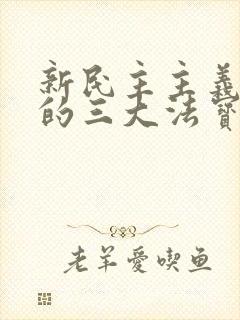 新民主主義
的三大法寶
老羊愛喫鱼